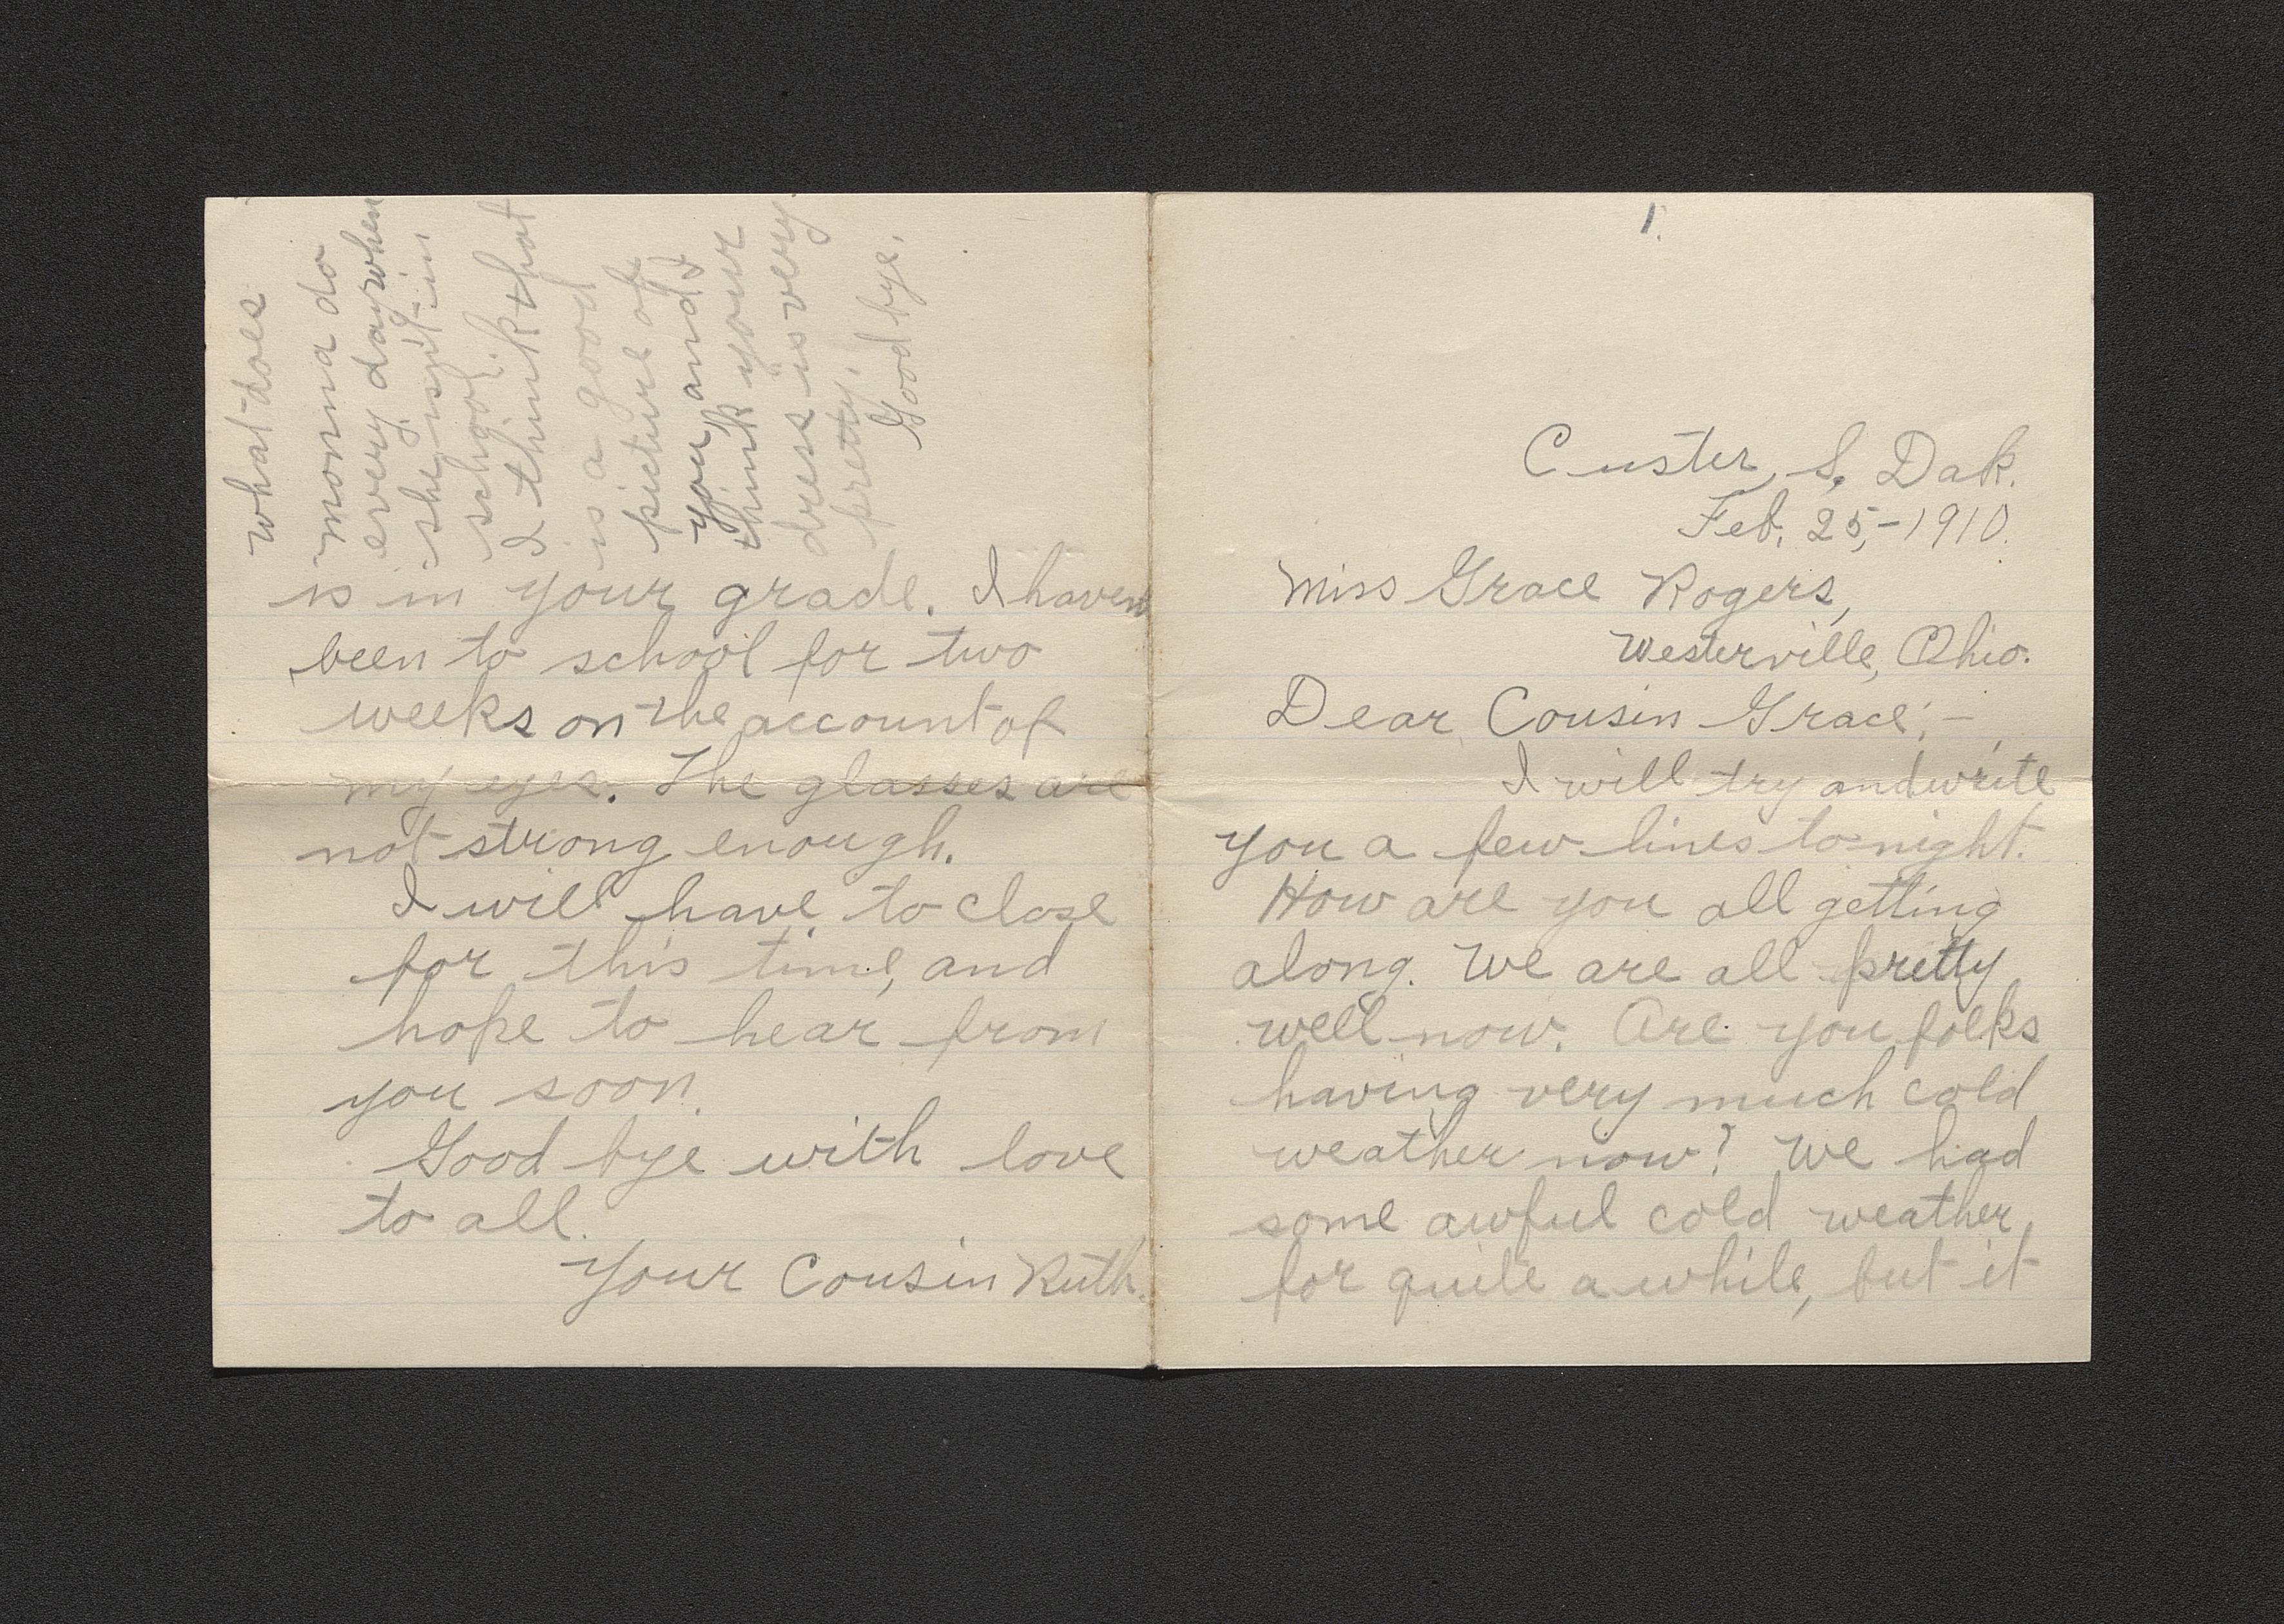 1.
Custer, S. Dak.
Feb. 25,-1910.
Miss Grace Rogers,
Westerville, Ohio.
Dear Cousin Grace;-
I will try and write
you a few lines to-night.
How are you all getting
along. We are all pretty
well now. Are you folks
having very much cold
weather now? We had
some awful cold weather
for quite a while, but it
is in your grade. I haven
been to school for two
weeks on the account of
my eyes. The glasses are
not strong enough.
I will have to close
for this time, and
hope to hear from
you soon.
Good bye with love
to all.
Your Cousin Ruth.
What does
monna do
every day when
she isn't in
school.
I think that
is a good
picture of
you and I
think your
dress is very
pretty.
Good bye.